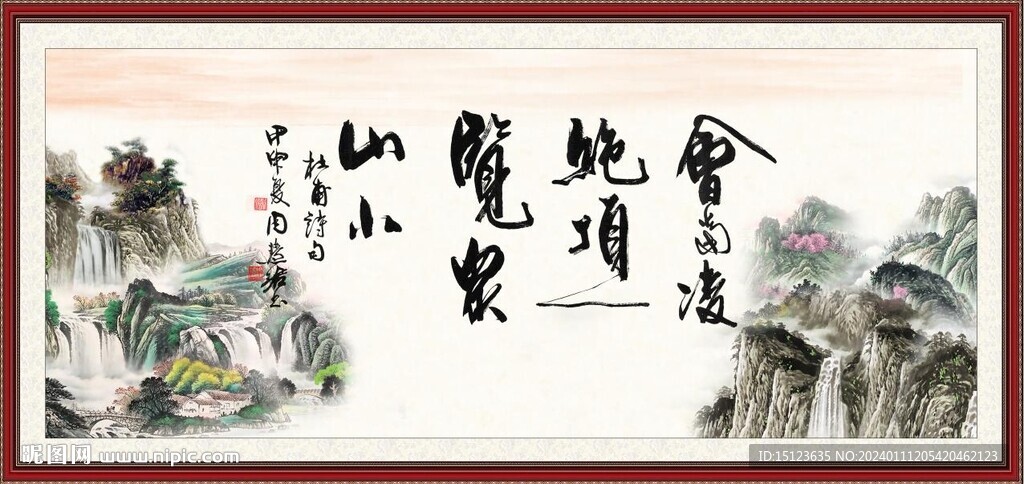 會當凌
絶頂一
覽眾
山小
杜甫詩句
甲申夏周慧珺書
昵图网 www.nipic.com
ID:15123635 NO:20240111205420462123